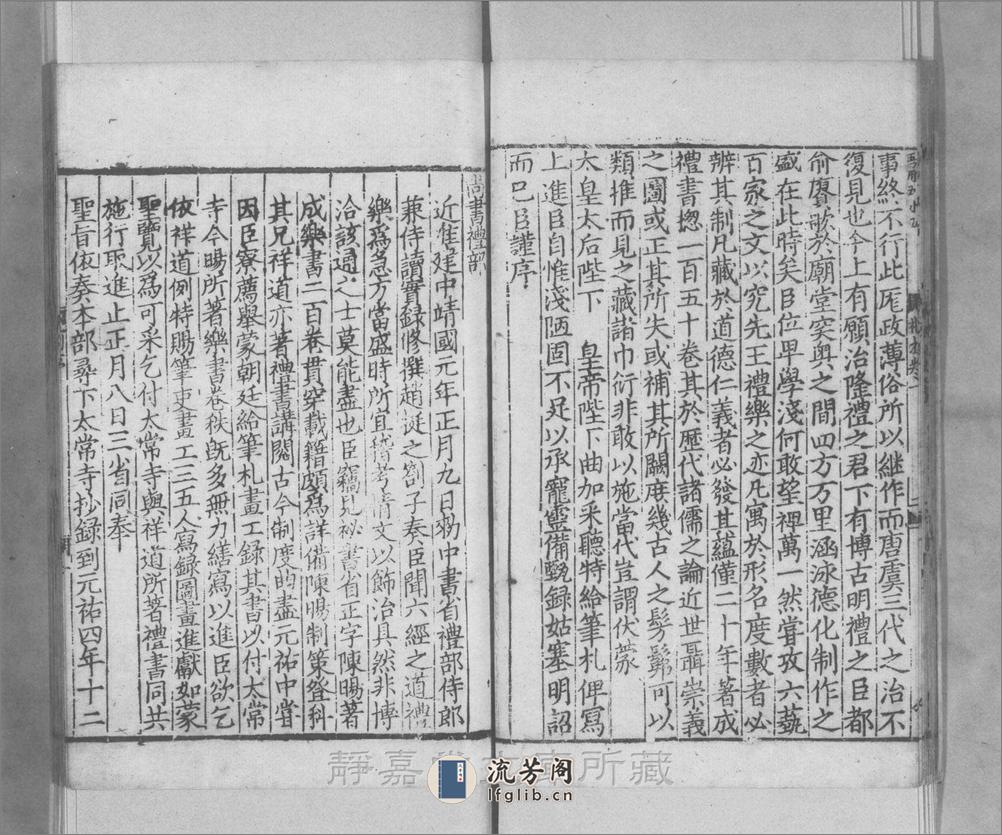 事終不行此厖政薄俗所以継作而唐虞三代之治不
復見也今上有願治隆禮之君下有博古明禮之臣都
俞賡歌於廟堂突奥之間四方万里涵泳德化制作之
盛在此時矣臣位卑學淺何敢望裨萬一然甞攷六蓺
百家之文以究先王禮樂之亦凡寓於形名度數者必
辨其制凡藏於道德仁義者必發其蘊僅二十年著成
禮書揔一百五十卷其於歷代諸儒之論近世聶崇義
之圖或正其所失或補其所闕庻幾古人之髣髴可以
類推而見之藏諸巾衍非敢以施當代豈謂伏蒙
太皇太后陛下 皇帝陛下曲加采聽特給筆札俾寫
上進臣自惟淺陋固不足以承寵靈備甄録姑塞明詔
而已臣謹序
尚書禮部
近准建中靖國元年正月九日勑中書省禮部侍郎
兼侍讀實録修撰趙挻之劄子奏臣聞六經之道禮
樂爲急方當盛時所宜稽考情文以飾治具然非博
洽該通之士莫能盡也臣竊見祕書省正字陳暘著
成樂書二百卷貫穿載籍頗爲詳備陳暘制策登科
其兄祥道亦著禮書講閱古今制度的盡元祐中甞
因臣寮薦舉蒙朝廷給筆札畫工録其書以付太常
寺今暘所著樂書卷秩旣多無力繕寫以進臣欲乞
依祥道例特賜筆吏畫工三五人寫録圖畫進獻如蒙
聖覽以為可采乞付太常寺與祥道所著禮書同共
施行取進止正月八日三省同奉
聖旨依奏本部尋下太常寺抄録到元祐四年十二
靜嘉堂文庫所藏
流芳阁
lfglib.cn